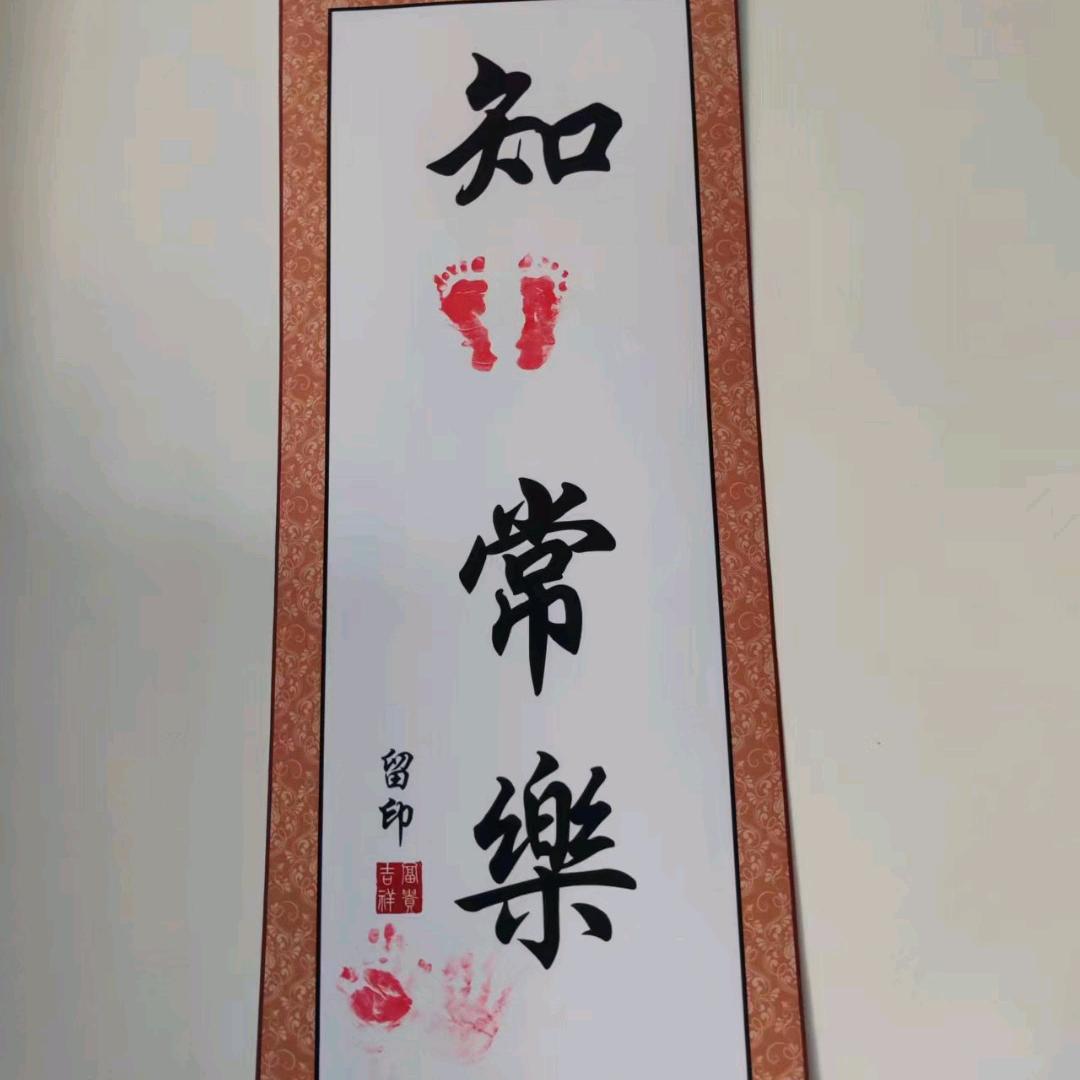 知
常
樂
留印
富貴
吉祥